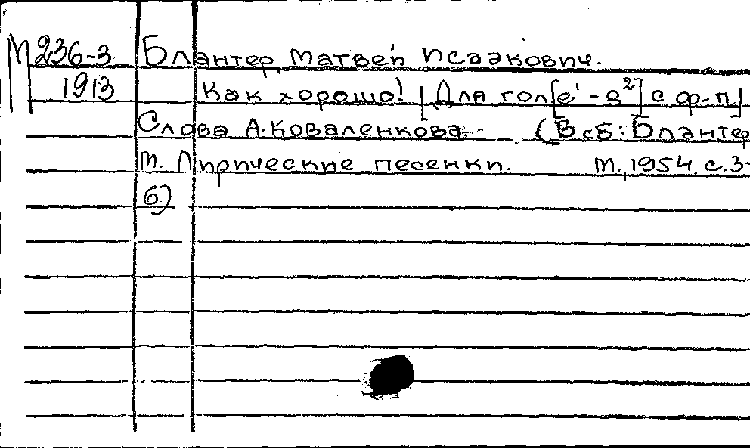 М 236-3 Блантер, Матвей Исаакович.
1913 Как хорошо! [Для гол[е¹-а²] с ф-п]
Слова А. Коваленкова. (В сб: Блантер
М. Лирические песенки. М., 1954, с. 3-
6)